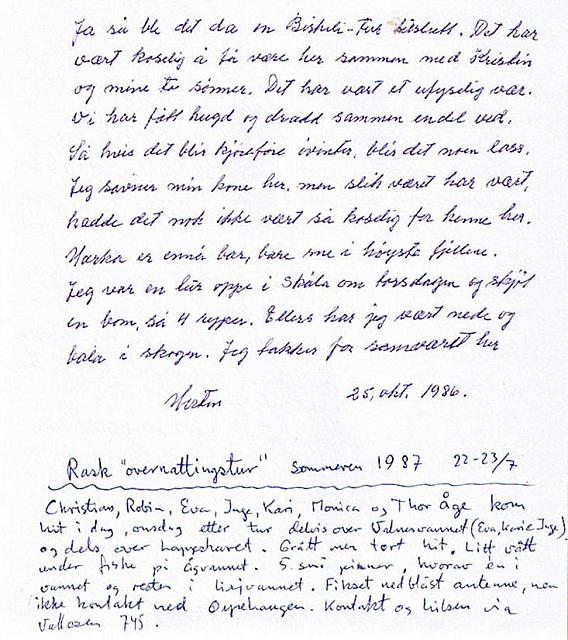 Ja så ble det da en Bisheli-tur til slutt. Det har
vært koselig å få være her sammen med Kristin
og mine to sønner. Det har vært et ufyselig vær.
Vi har fått hugd og dradd sammen endel ved.
Så hvis det blir kjøreføre i vinter, blir det noen lass.
Jeg savner min kone her, men slik været har vært,
hadde det nok ikke vært så koselig for henne her.
Marka er ennå bar, bare sne i høyste fjellene.
Jeg var en tur oppe i Skåla om torsdagen og skjøt
en bom, så 4 ryper. Ellers har jeg vært nede og
i skogen. Jeg takker for samværet her
25. okt. 1986.
Rask "overnattingstur" sommeren 1987 22-23/7
Christian, Robin, Eva, Inge, Kari, Monica og Thor Åge kom
hit i dag, onsdag etter tur delvis over (Eva, Kari & Inge)
og dels over . Grått men tørt hit. Litt vått
under fiske på . 5 små pinner, hvorav én i
vannet og resten i . Fikset nedblåst antenne, men
ikke kontakt med . Kontakt og hilsen via
745.